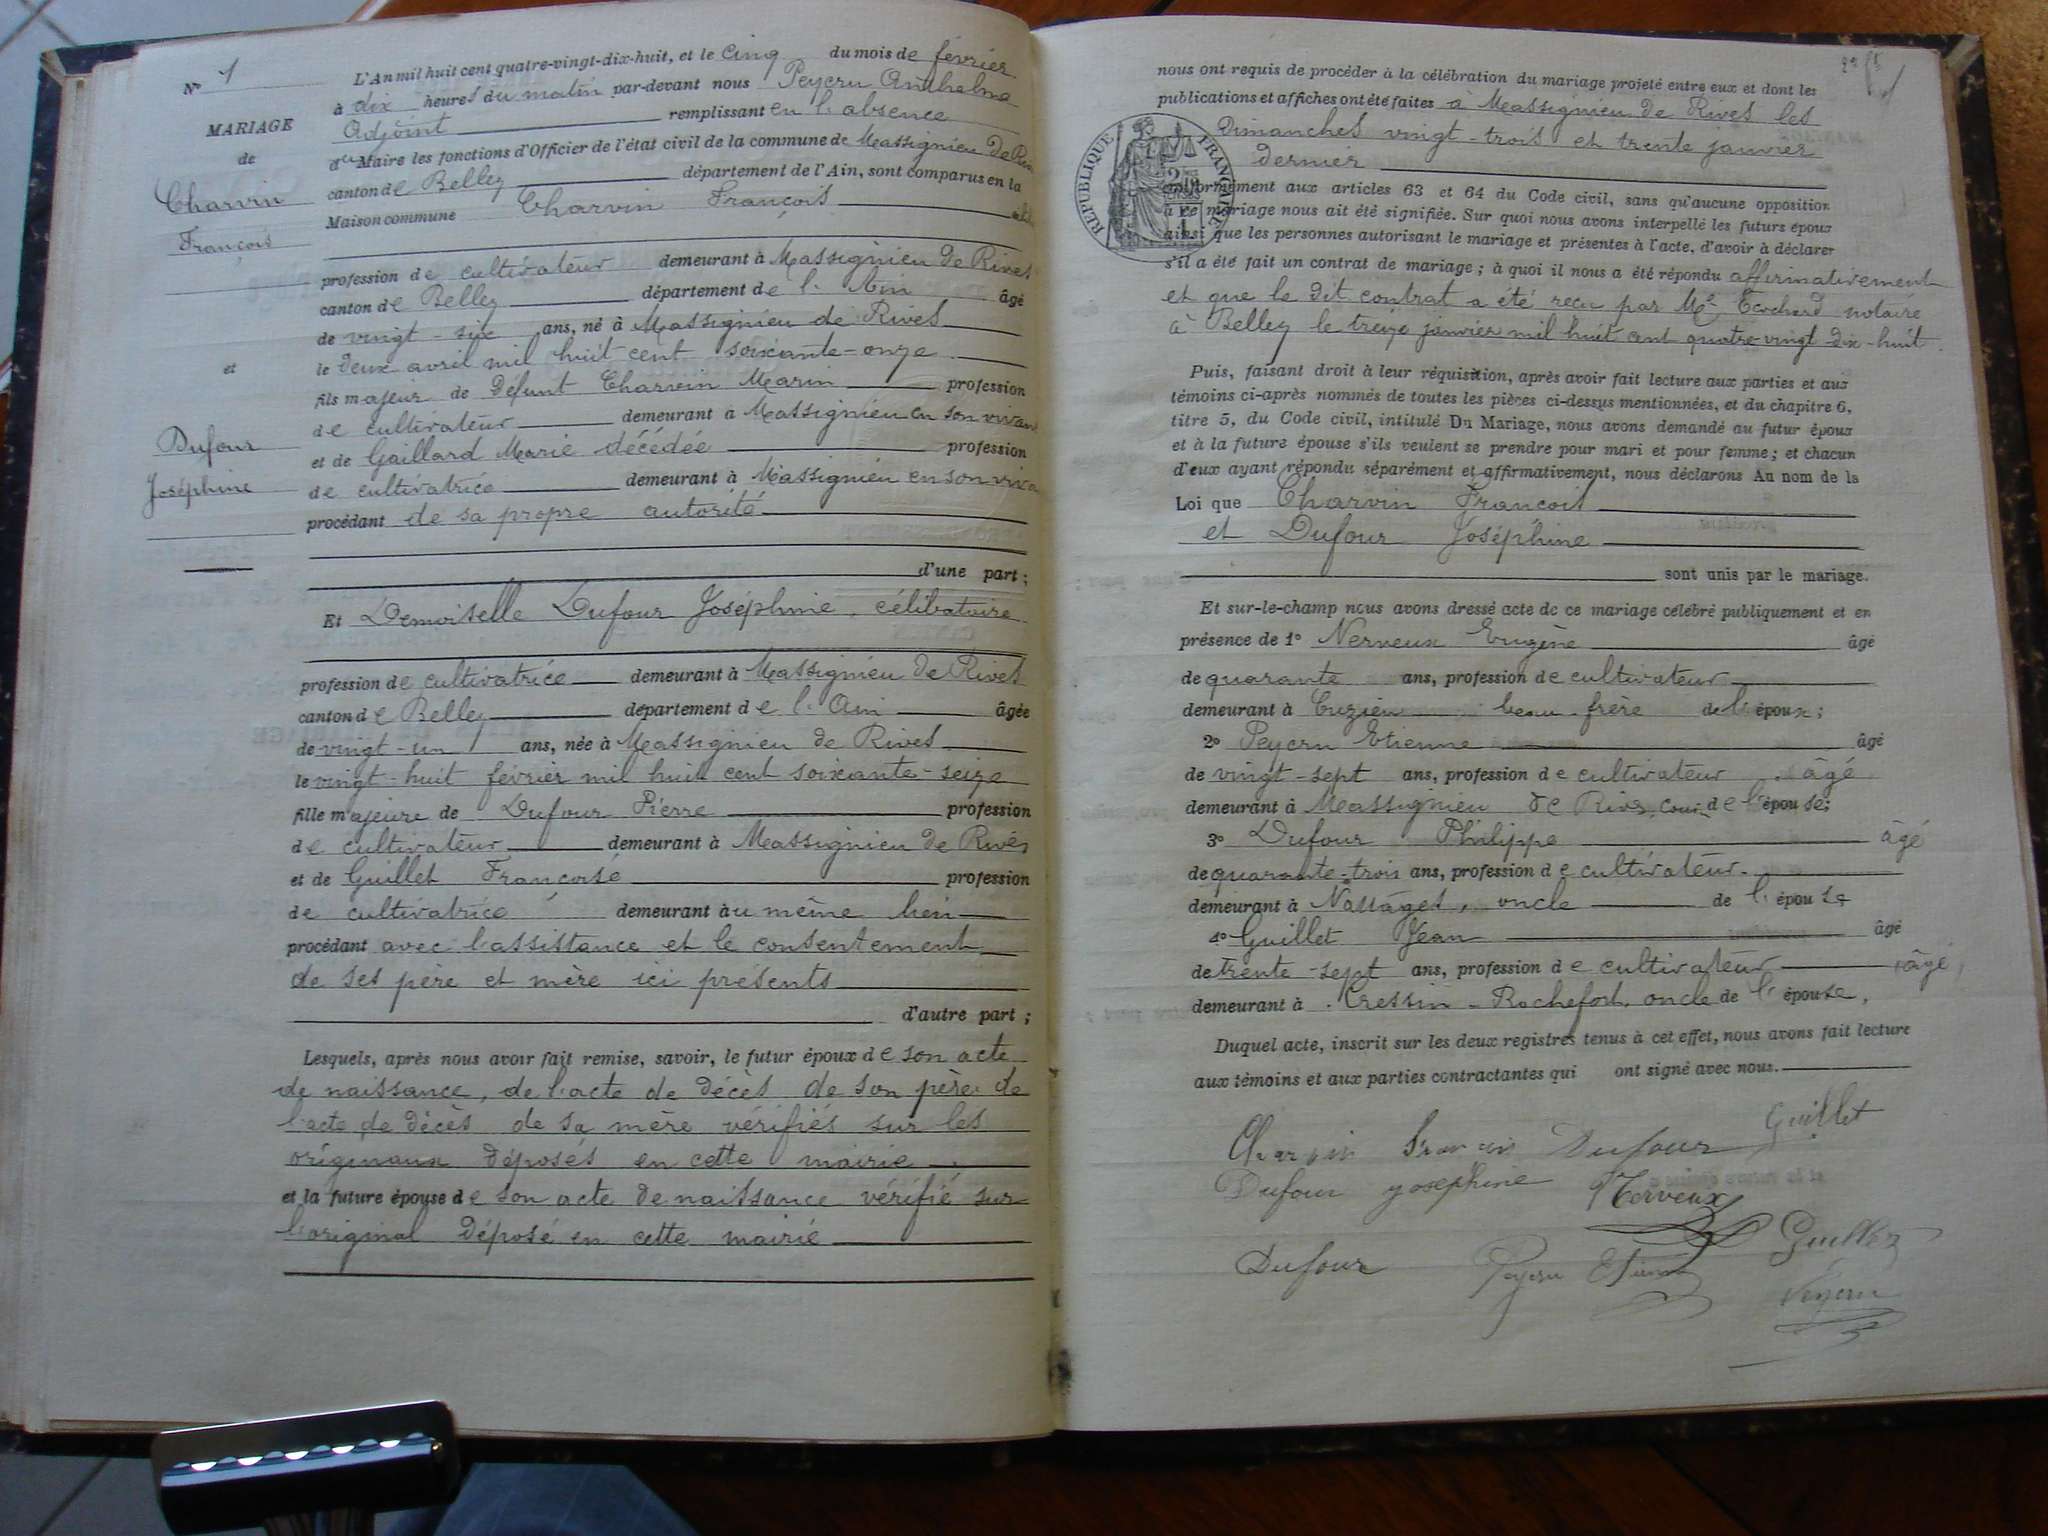 N° 1
MARIAGE
de
Charvin
François
et
Dufour
Joséphine
L'An mil huit cent quatre-vingt-dix-huit, et le Cinq du mois de février
à dix heures du matin par-devant nous Peycru Anthelme
Adjoint remplissant en l'absence
du Maire les fonctions d'Officier de l'état civil de la commune de Massignieu de Rives
canton de Belley département de l'Ain, sont comparus en la
Maison commune Charvin François
profession de cultivateur demeurant à Massignieu de Rives
canton de Belley département de l'Ain âgé
de vingt-six ans, né à Massignieu de Rives
le deux avril mil huit cent soixante-onze
fils majeur de Défunt Charvin Marin profession
de cultivateur demeurant à Massignieu en son vivant
et de Gaillard Marie décédée profession
de cultivatrice demeurant à Massignieu en son viva
procédant de sa propre autorité
d'une part;
Et Demoiselle Dufour Joséphine, célibataire
profession de cultivatrice demeurant à Massignieu de Rives
canton de Belley département de l'Ain âgée
de vingt-un ans, née à Massignieu de Rives
le vingt-huit février mil huit cent soixante-seize
fille majeure de Dufour Pierre profession
de cultivateur demeurant à Massignieu de Rives
et de Guillet Françoise profession
de cultivatrice demeurant au même lieu
procédant avec l'assistance et le consentement
de ses père et mère ici présents
d'autre part;
Lesquels, après nous avoir fait remise, savoir, le futur époux de son acte
de naissance, de l'acte de décès de son père de
l'acte de décès de sa mère vérifiés sur les
originaux déposés en cette mairie
et la future épouse de son acte de naissance vérifié sur
l'original déposé en cette mairie
nous ont requis de procéder à la célébration du mariage projeté entre eux et dont les
publications et affiches ont été faites à Massignieu de Rives les
Dimanches vingt-trois et trente janvier
dernier
RÉPUBLIQUE FRANÇAISE
conformément aux articles 63 et 64 du Code civil, sans qu'aucune opposition
à ce mariage nous ait été signifiée. Sur quoi nous avons interpellé les futurs époux
ainsi que les personnes autorisant le mariage et présentes à l'acte, d'avoir à déclarer
s'il a été fait un contrat de mariage; à quoi il nous a été répondu affirmativement
et que le dit contrat a été reçu par Me Ecochard notaire
à Belley le treize janvier mil huit cent quatre-vingt dix-huit.
Puis, faisant droit à leur réquisition, après avoir fait lecture aux parties et aux
témoins ci-après nommés de toutes les pièces ci-dessus mentionnées, et du chapitre 6,
titre 5, du Code civil, intitulé Du Mariage, nous avons demandé au futur époux
et à la future épouse s'ils veulent se prendre pour mari et pour femme; et chacun
d'eux ayant répondu séparément et affirmativement, nous déclarons Au nom de la
Loi que Charvin François
et Dufour Joséphine
sont unis par le mariage.
Et sur-le-champ nous avons dressé acte de ce mariage célébré publiquement et en
présence de 1° Nerveux Eugène âgé
de quarante ans, profession de cultivateur
demeurant à Cuzieu beau-frère de l'époux;
2° Peycru Etienne âgé
de vingt-sept ans, profession de cultivateur âgé
demeurant à Massignieu de Rives, cousin de l'épouse;
3° Dufour Philippe âgé
de quarante-trois ans, profession de cultivateur
demeurant à Nattages, oncle de l'épouse
4° Guillet Jean âgé
de trente-sept ans, profession de cultivateur âgé,
demeurant à Cressin-Rochefort, oncle de l'épouse,
Duquel acte, inscrit sur les deux registres tenus à cet effet, nous avons fait lecture
aux témoins et aux parties contractantes qui ont signé avec nous.
Charvin François Dufour Guillet
Dufour josephine Nerveux
Dufour Peycru Etienne Guillet
Peycru